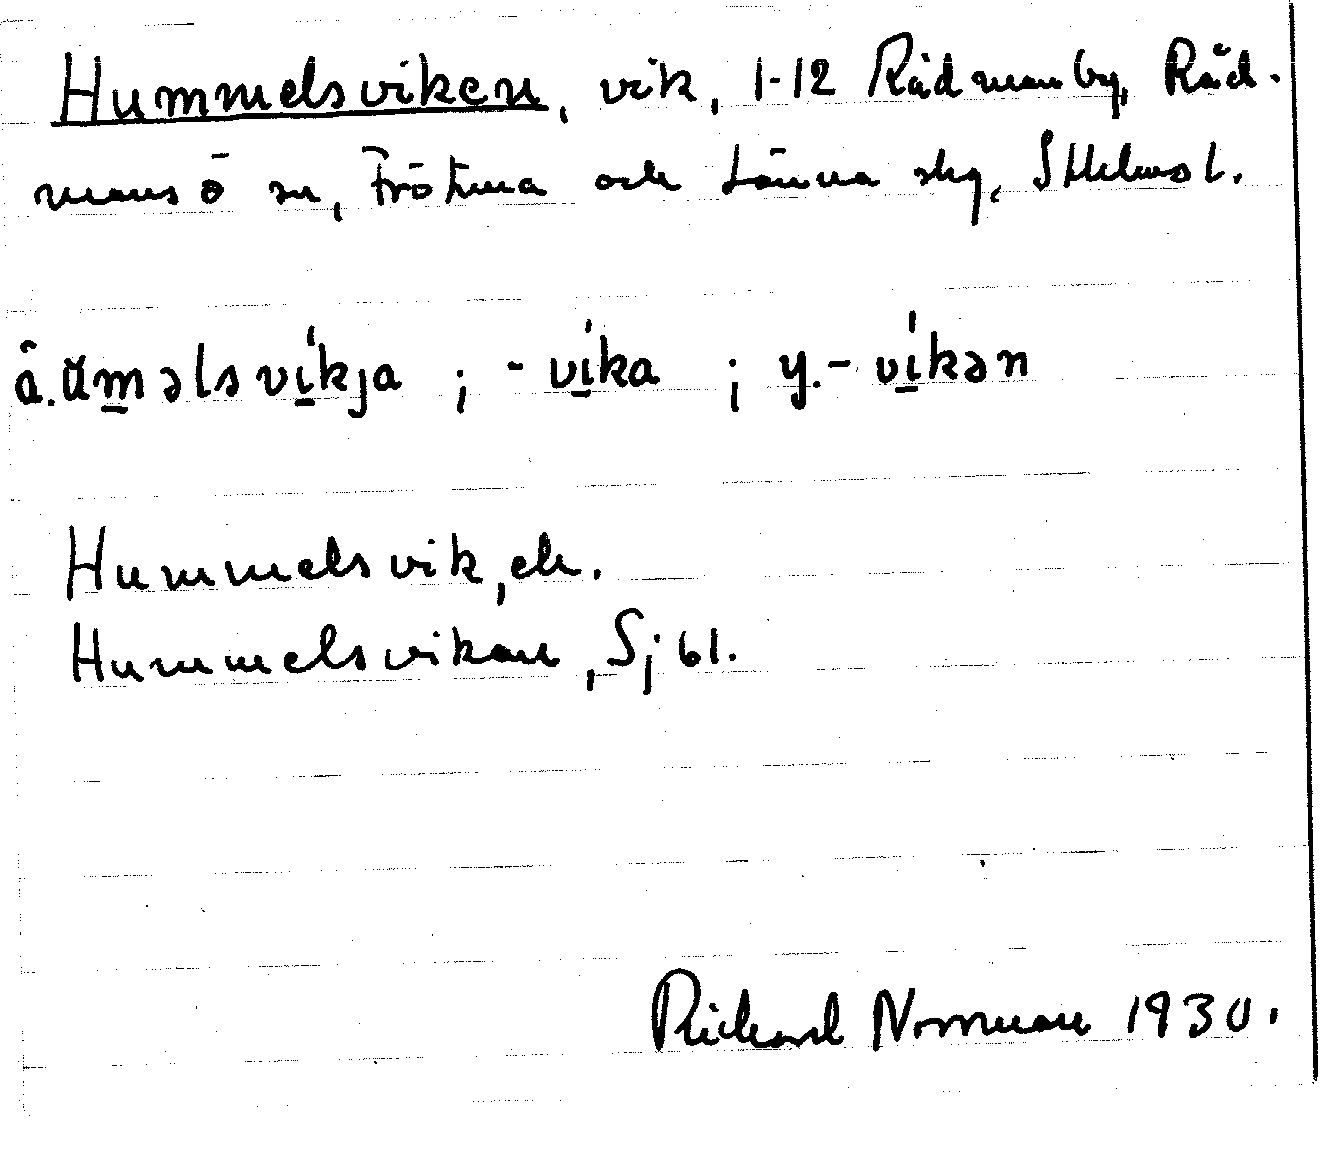 Hummelsviken, vik, 1-12 Rådmanby, Råd-
mansö sn, Frötuna och Länna skg, Sthlms l.
ä. ŭm̲əlsvi̲kja ; -vi̲ka ; y. -vi̲kən
Hummelsvik, ek.
Hummelsvikan, Sj 61.
Rickard Norrman 1930.